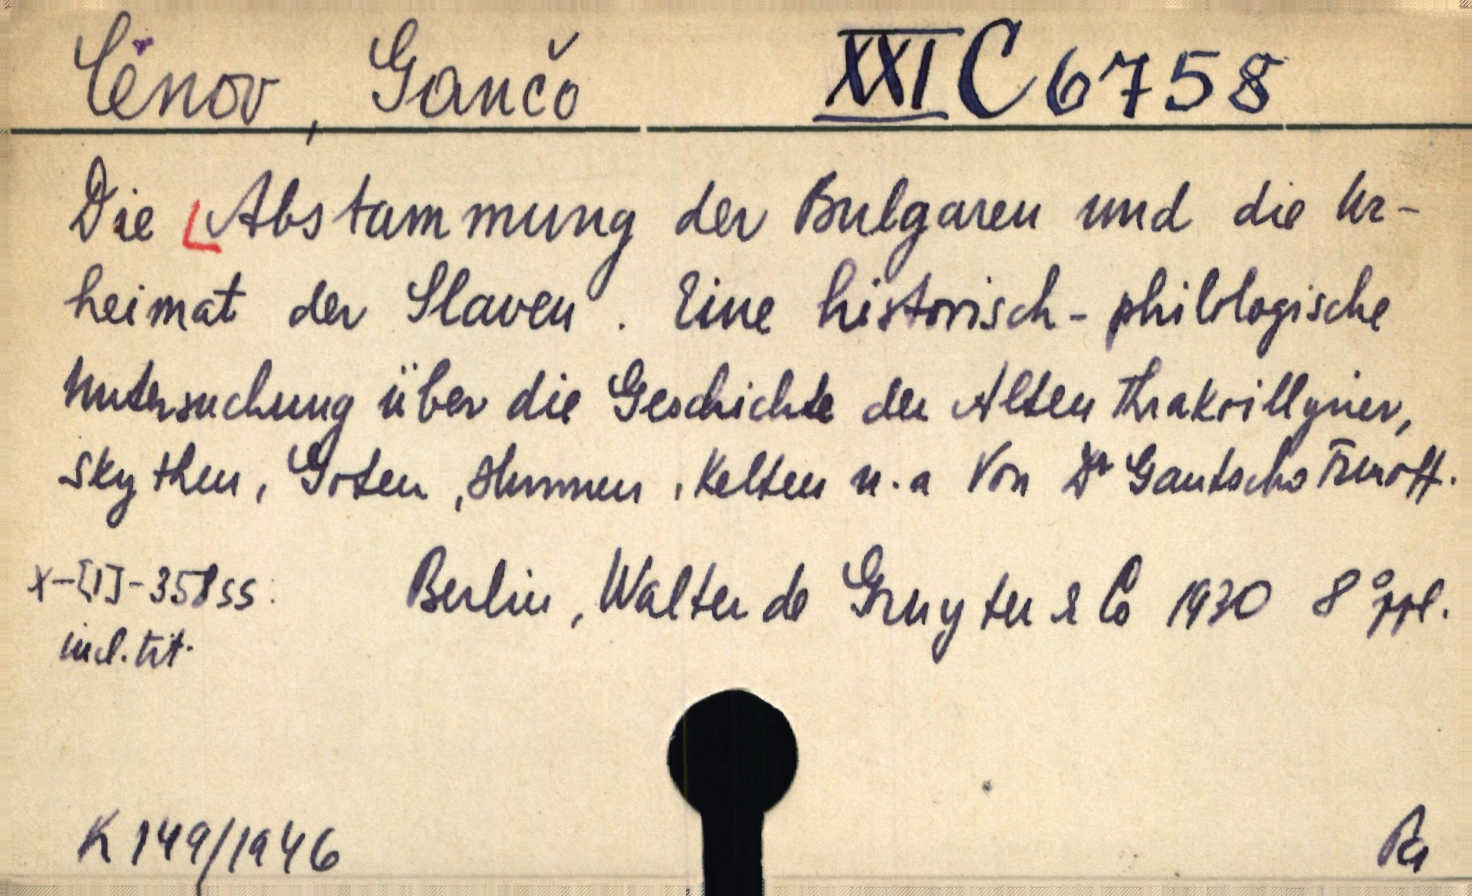 Cěnov, Gančo XXI C 6758
Die Abstammung der Bulgaren und die Ur-
heimat der Slaven. Eine historisch-philologische
Untersuchung über die Geschichte der Alten Thrakoillyrier,
Skythen, Goten, Hunnen, Kelten u.a Von Dr Gantscho Tzenoff.
X-[1]-358 ss. Berlin, Walter de Gruyter & Co 1930 8° ppl.
incl. tit.
K 149/1946